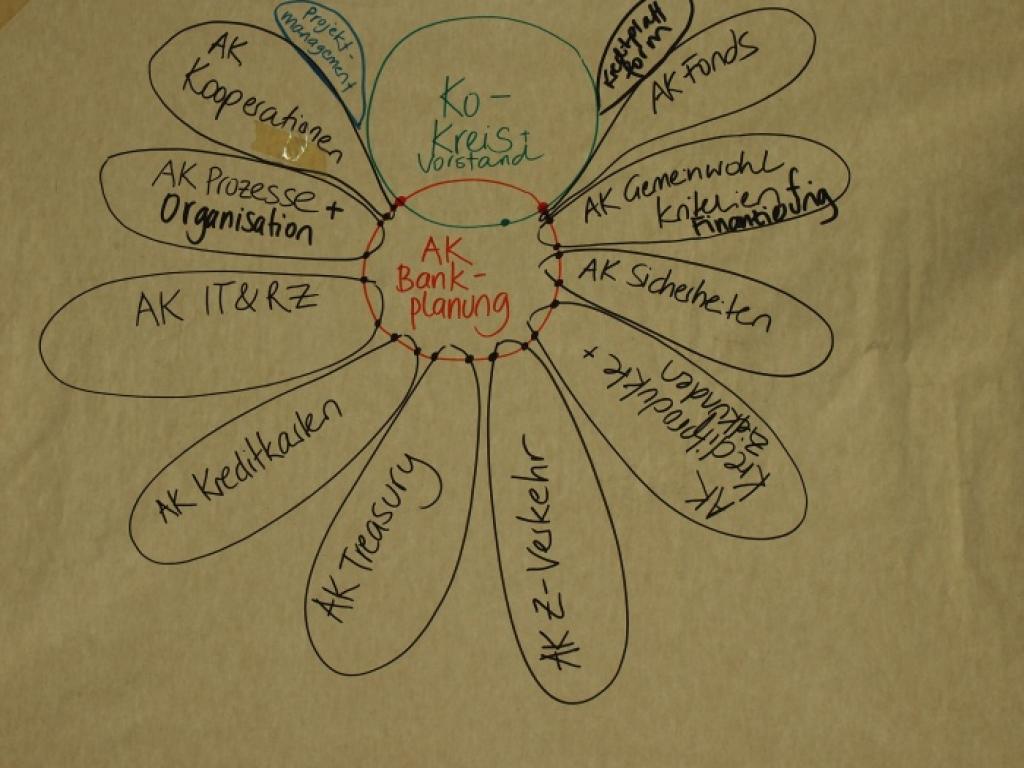 Projekt-
management
AK
Kooperationen
AK Prozesse +
Organisation
AK IT & RZ
AK Kreditkarten
AK Treasury
AK Z-Verkehr
AK
Kreditprodukte +
AK Sicherheiten
AK Gemeinwohl
Kriterien
AK Fonds
Ko-
Kreis +
Vorstand
AK
Bank-
planung